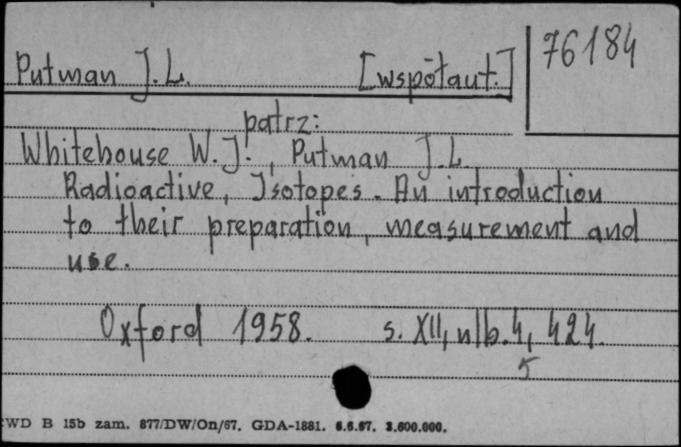 Putman J.L. [współaut.]
76184
patrz:
Whitehouse W.J., Putman J.L
Radioactive, Isotopes. An introduction
to their preparation, measurement and
use.
Oxford 1958. s. XII, nlb. 4, 424.
5
WD B 15b zam. 877/DW/On/67. GDA-1881. 6.6.67. 3.600.000.